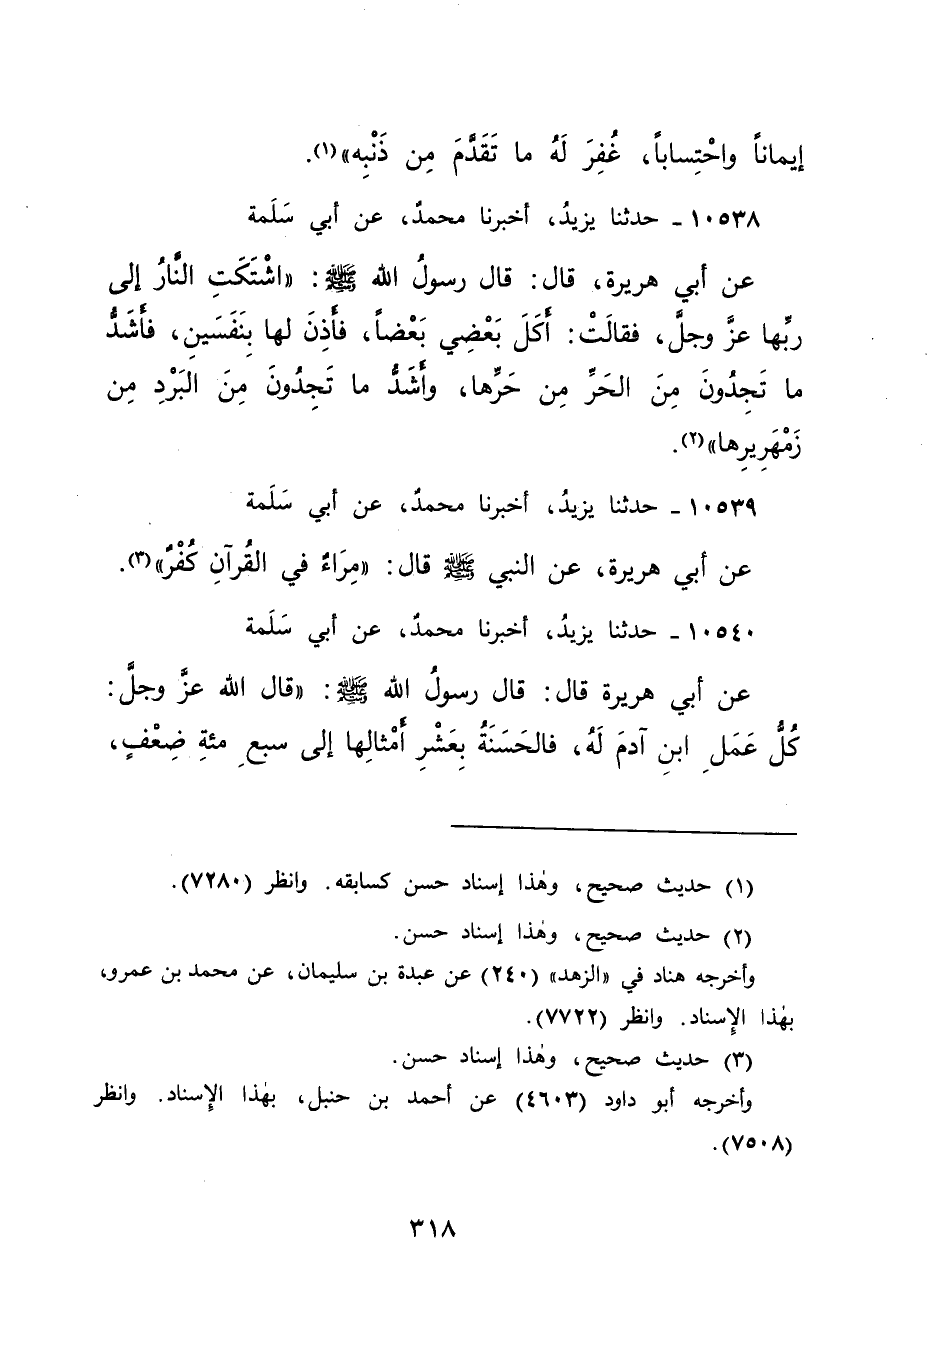 إيماناً واحْتِساباً، غُفِرَ لَهُ ما تَقَدَّمَ مِن ذَنْبِه»(١).
١٠٥٣٨ ـ حدثنا يزيدُ، أخبرنا محمدٌ، عن أبي سَلَمة
عن أبي هريرة، قال: قال رسولُ الله ﷺ: «اشْتَكَتِ النَّارُ إلى
ربِّها عزَّ وجلَّ، فقالَتْ: أَكَلَ بَعْضِي بَعْضاً، فأَذِنَ لها بِنَفَسَينِ، فأَشَدُّ
ما تَجِدُونَ مِنَ الحَرِّ مِن حَرِّها، وأَشَدُّ ما تَجِدُونَ مِنَ البَرْدِ مِن
زَمْهَرِيرِها»(٢).
١٠٥٣٩ ـ حدثنا يزيدُ، أخبرنا محمدٌ، عن أبي سَلَمة
عن أبي هريرة، عن النبي ﷺ قال: «مِرَاءٌ في القُرآنِ كُفْرٌ»(٣).
١٠٥٤٠ ـ حدثنا يزيدُ، أخبرنا محمدٌ، عن أبي سَلَمة
عن أبي هريرة قال: قال رسولُ الله ﷺ: «قال الله عزَّ وجلَّ:
كُلُّ عَمَلِ ابنِ آدمَ لَهُ، فالحَسَنَةُ بِعَشْرِ أَمْثالِها إلى سبعِ مئةِ ضِعْفٍ،
(١) حديث صحيح، وهٰذا إسناد حسن كسابقه. وانظر (٧٢٨٠).
(٢) حديث صحيح، وهٰذا إسناد حسن.
وأخرجه هناد في «الزهد» (٢٤٠) عن عبدة بن سليمان، عن محمد بن عمرو،
بهٰذا الإسناد. وانظر (٧٧٢٢).
(٣) حديث صحيح، وهٰذا إسناد حسن.
وأخرجه أبو داود (٤٦٠٣) عن أحمد بن حنبل، بهٰذا الإسناد. وانظر
(٧٥٠٨).
٣١٨